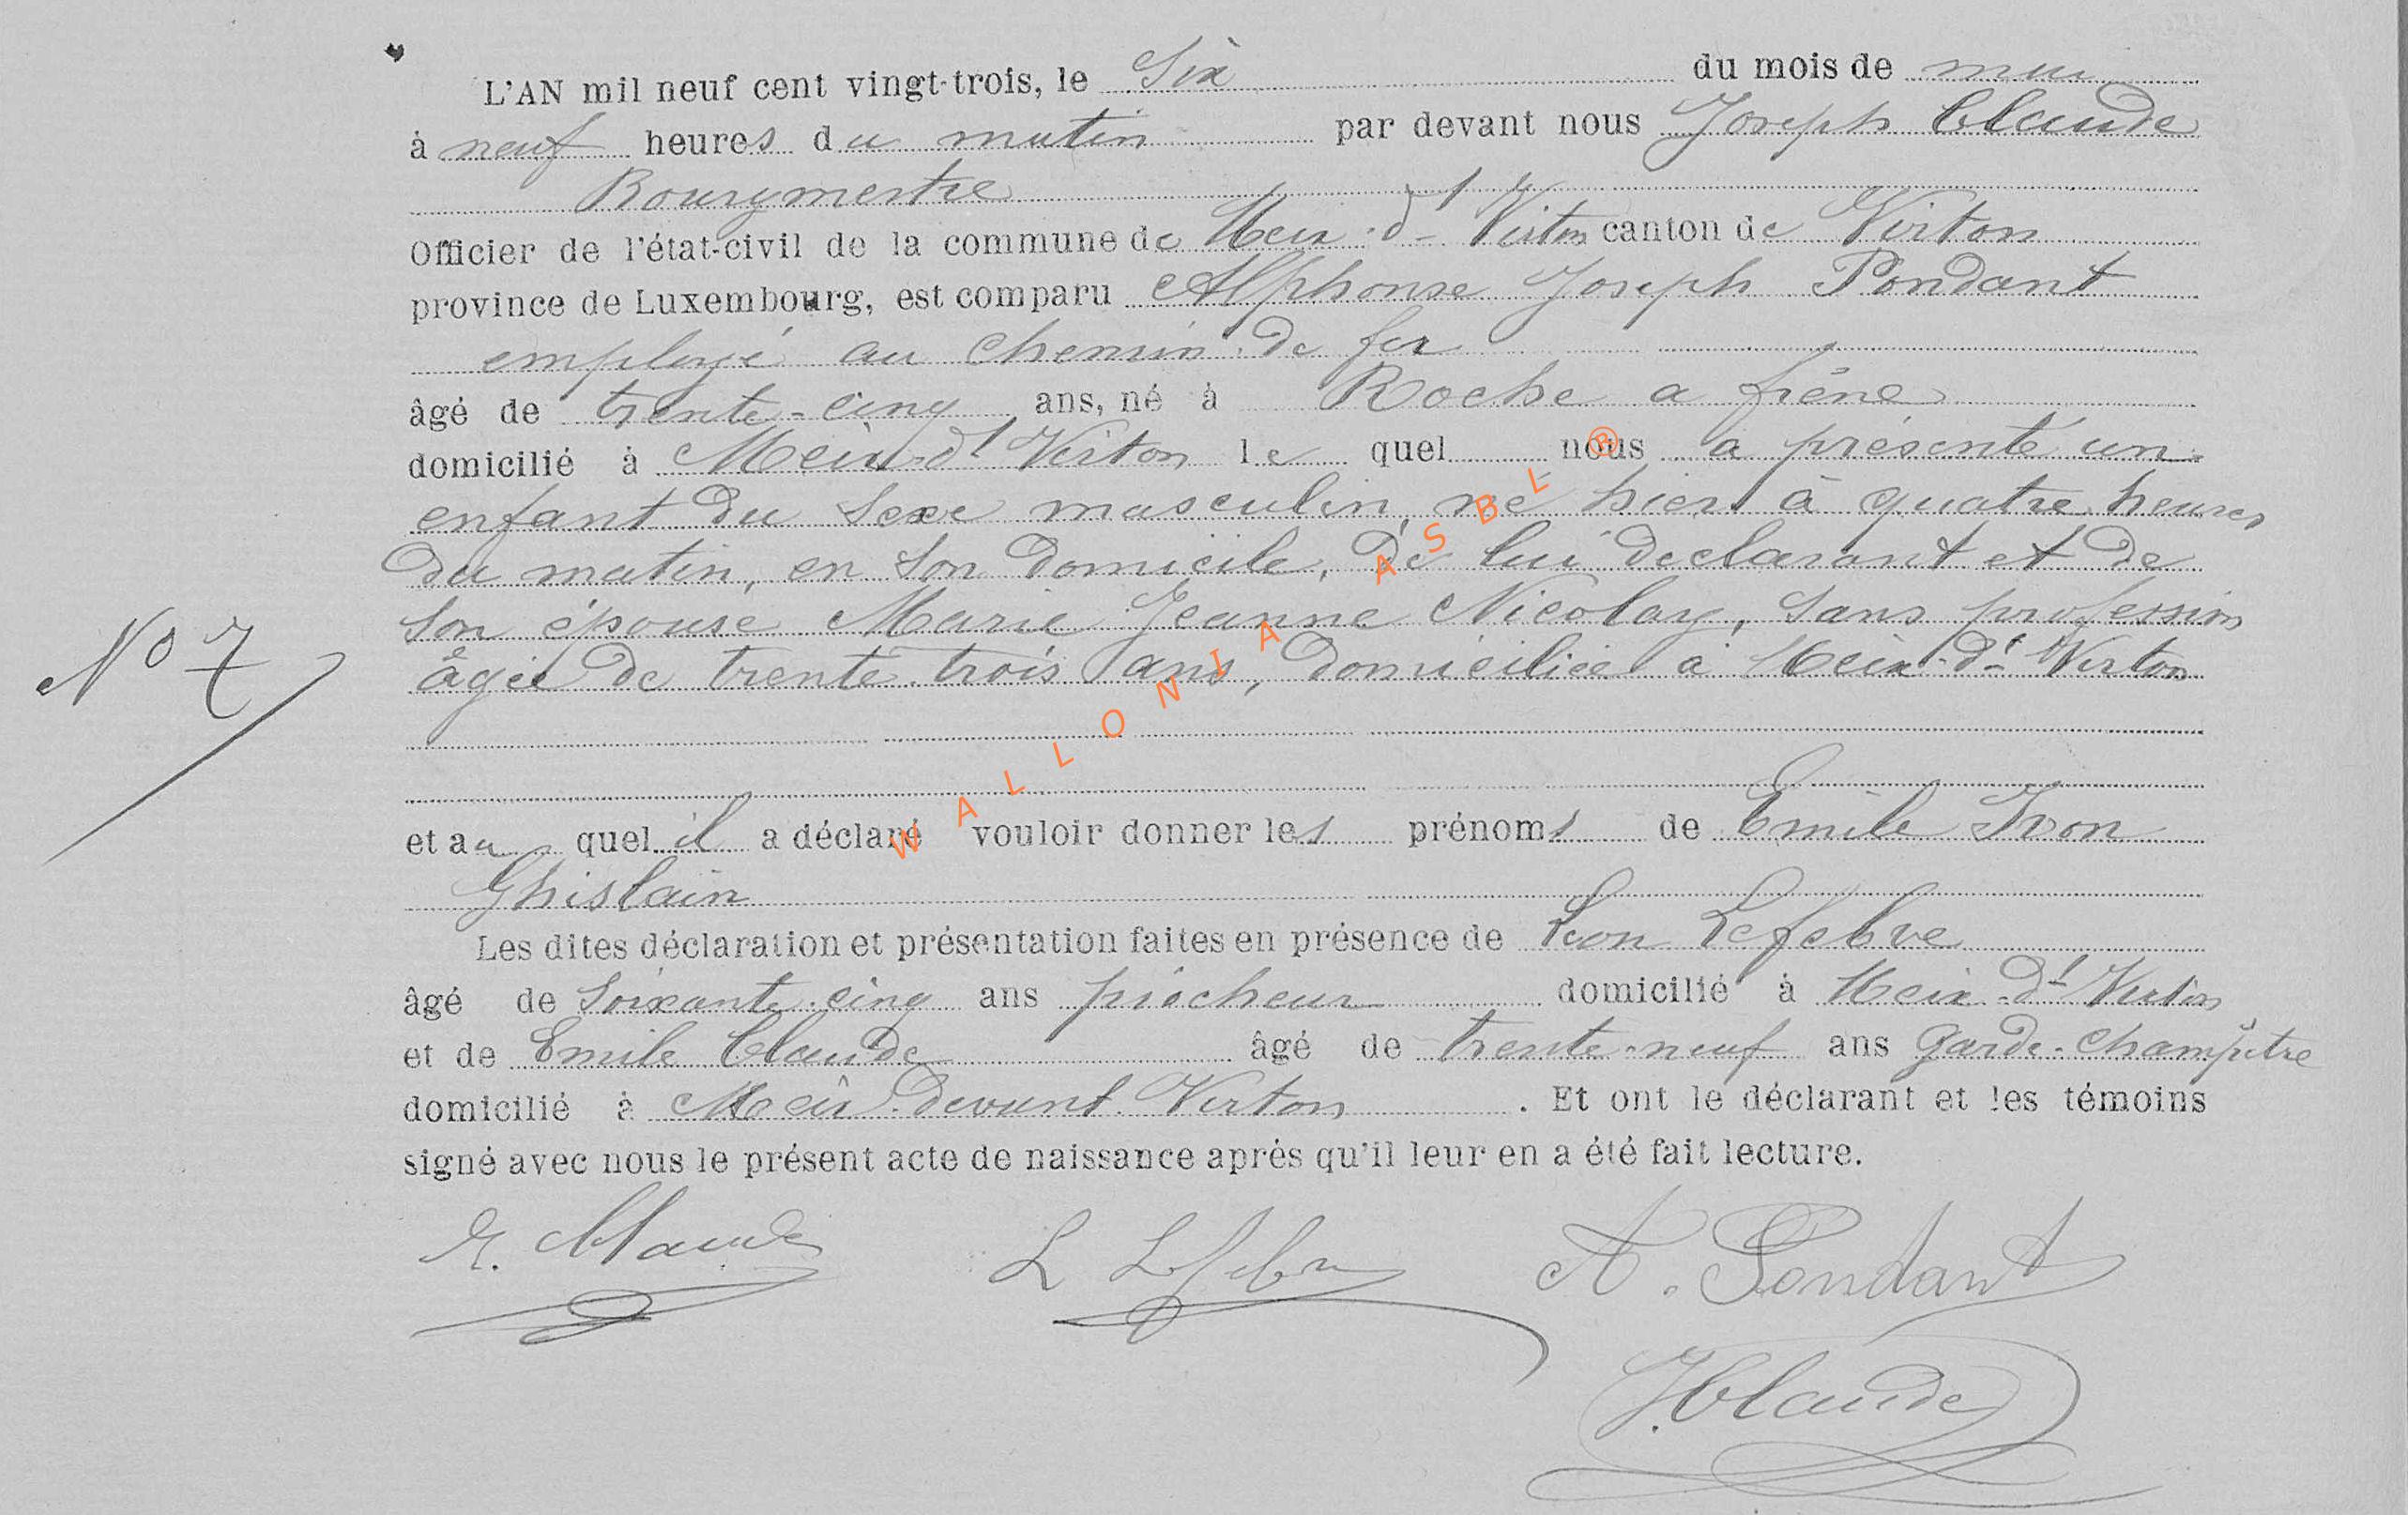 L'AN mil neuf cent vingt-trois, le Six du mois de mai
à neuf heures du matin par devant nous Joseph Claude
Bourgmestre
Officier de l'état-civil de la commune de Meix-dt Virton canton de Virton
province de Luxembourg, est comparu Alphonse Joseph Pondant
employé au chemin de fer
âgé de trente-cinq ans, né à Roche a frêne
domicilié à Meix-dt Virton le quel nous a présenté un
enfant du sexe masculin, né hier à quatre heures
du matin, en son domicile, de lui déclarant et de
son épouse Marie Jeanne Nicolay, sans profession
âgée de trente-trois ans, domiciliée à Meix-dt Virton
No 7
et au quel il a déclaré vouloir donner les prénoms de Emile Ivon
Ghislain
Les dites déclaration et présentation faites en présence de Léon Lefebve
âgé de soixante-cinq ans piocheur domicilié à Meix-dt Virton
et de Emile Claude âgé de trente-neuf ans garde-champêtre
domicilié à Meix-devant-Virton. Et ont le déclarant et les témoins
signé avec nous le présent acte de naissance après qu'il leur en a été fait lecture.
E. Claude L Lefebve A. Pondant
J. Claude
WALLONIA ASBL ®